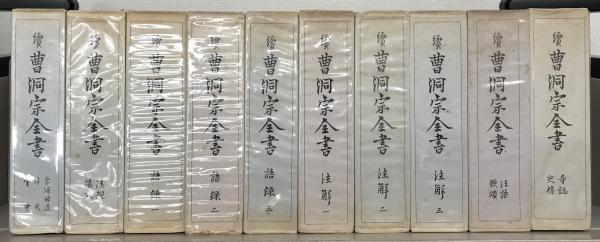 續曹洞宗全書
宗源補遺
禅戒
室中
續曹洞宗全書
法規
講式
續曹洞宗全書 語録 一
續曹洞宗全書 語録 二
續曹洞宗全書 語録 三
續曹洞宗全書 注解 一
續曹洞宗全書 注解 二
續曹洞宗全書 注解 三
續曹洞宗全書
法語
歌頌
續曹洞宗全書
寺誌
史傳